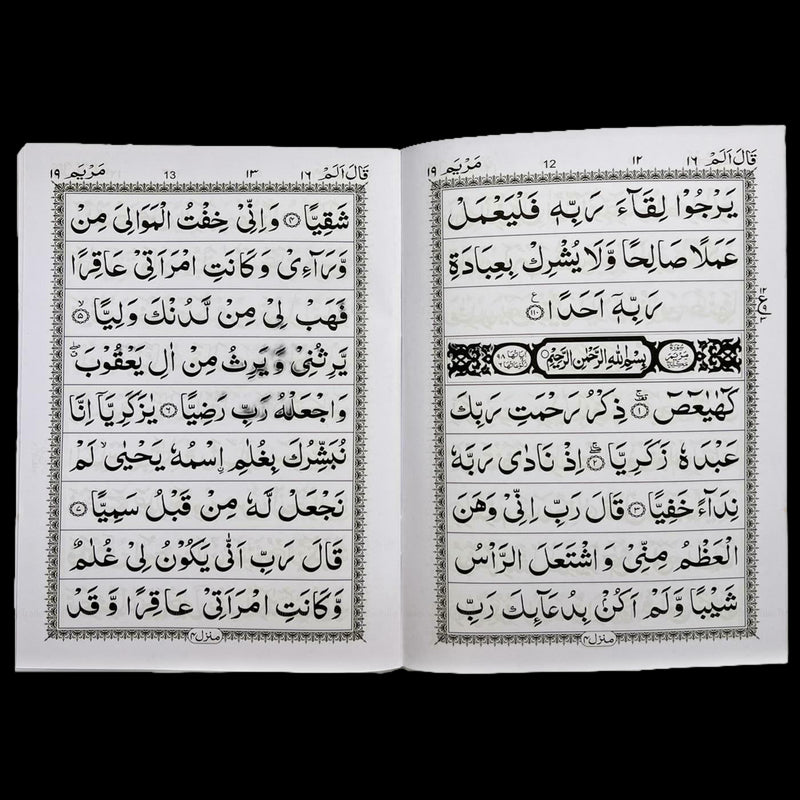 قَالَ اَلَمْ ١٦ ١٢ 12 مَرْيَم ١٩
يَرْجُوْا لِقَآءَ رَبِّهٖ فَلْيَعْمَلْ
عَمَلًا صَالِحًا وَّلَا يُشْرِكْ بِعِبَادَةِ
رَبِّهٖٓ اَحَدًا ۝١١٠
سُوْرَةُ مَرْيَمَ بِسْمِ اللّٰهِ الرَّحْمٰنِ الرَّحِيْمِ
كٓهٰيٰعٓصٓ ۝١ ذِكْرُ رَحْمَتِ رَبِّكَ
عَبْدَهٗ زَكَرِيَّا ۝٢ اِذْ نَادٰى رَبَّهٗ
نِدَآءً خَفِيًّا ۝٣ قَالَ رَبِّ اِنِّيْ وَهَنَ
الْعَظْمُ مِنِّيْ وَاشْتَعَلَ الرَّاْسُ
شَيْبًا وَّلَمْ اَكُنْۢ بِدُعَآئِكَ رَبِّ
منزل ٤
قَالَ اَلَمْ ١٦ ١٣ 13 مَرْيَم ١٩
شَقِيًّا ۝٤ وَاِنِّيْ خِفْتُ الْمَوَالِيَ مِنْ
وَّرَآءِيْ وَكَانَتِ امْرَاَتِيْ عَاقِرًا
فَهَبْ لِيْ مِنْ لَّدُنْكَ وَلِيًّا ۝٥
يَّرِثُنِيْ وَيَرِثُ مِنْ اٰلِ يَعْقُوْبَ
وَاجْعَلْهُ رَبِّ رَضِيًّا ۝٦ يٰزَكَرِيَّآ اِنَّا
نُبَشِّرُكَ بِغُلٰمِ اِۨسْمُهٗ يَحْيٰى لَمْ
نَجْعَلْ لَّهٗ مِنْ قَبْلُ سَمِيًّا ۝٧
قَالَ رَبِّ اَنّٰى يَكُوْنُ لِيْ غُلٰمٌ
وَّكَانَتِ امْرَاَتِيْ عَاقِرًا وَّقَدْ
منزل ٤